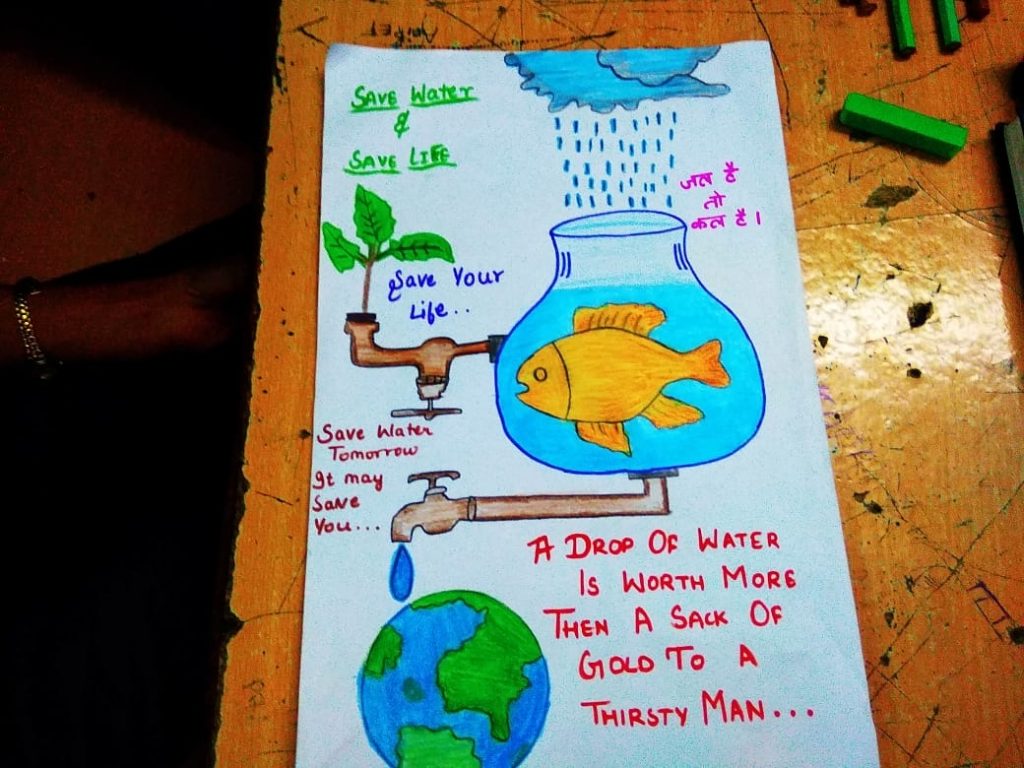 SAVE Water
&
SAVE LIFE
जल है
तो
कल है।
Save Your
Life..
Save Water
Tomorrow
It may
SAVE
You...
A DROP OF WATER
IS WORTH MORE
THEN A SACK OF
GOLD TO A
THIRSTY MAN...